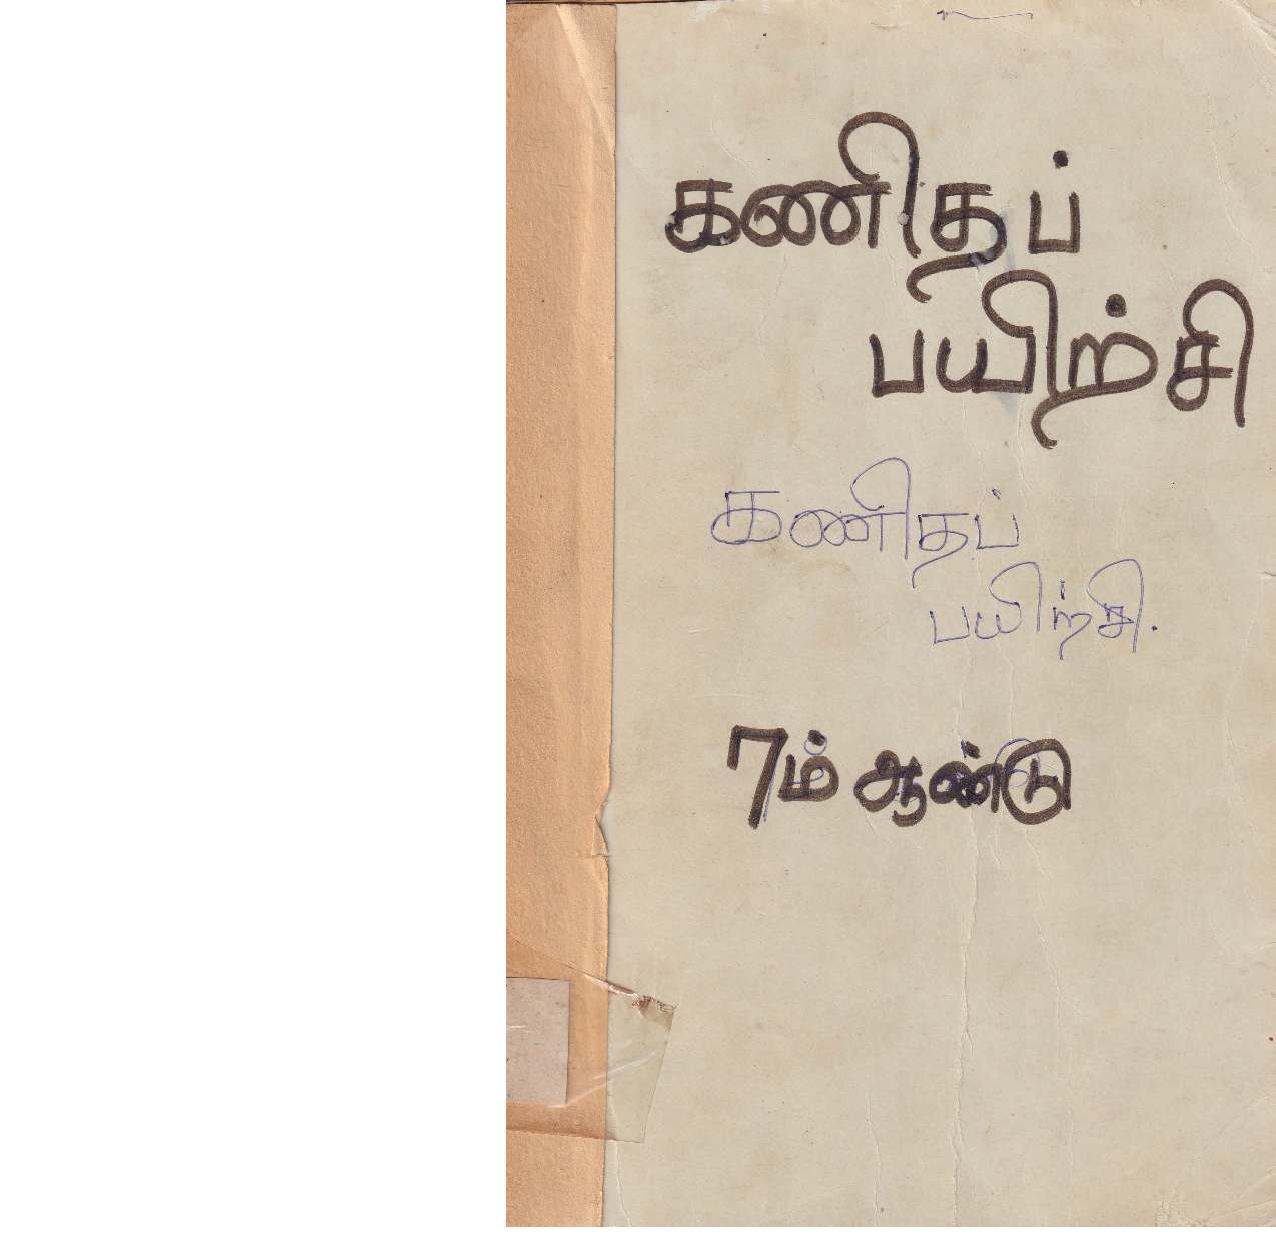 கணிதப்
பயிற்சி
கணிதப்
பயிற்சி.
7ம் ஆண்டு